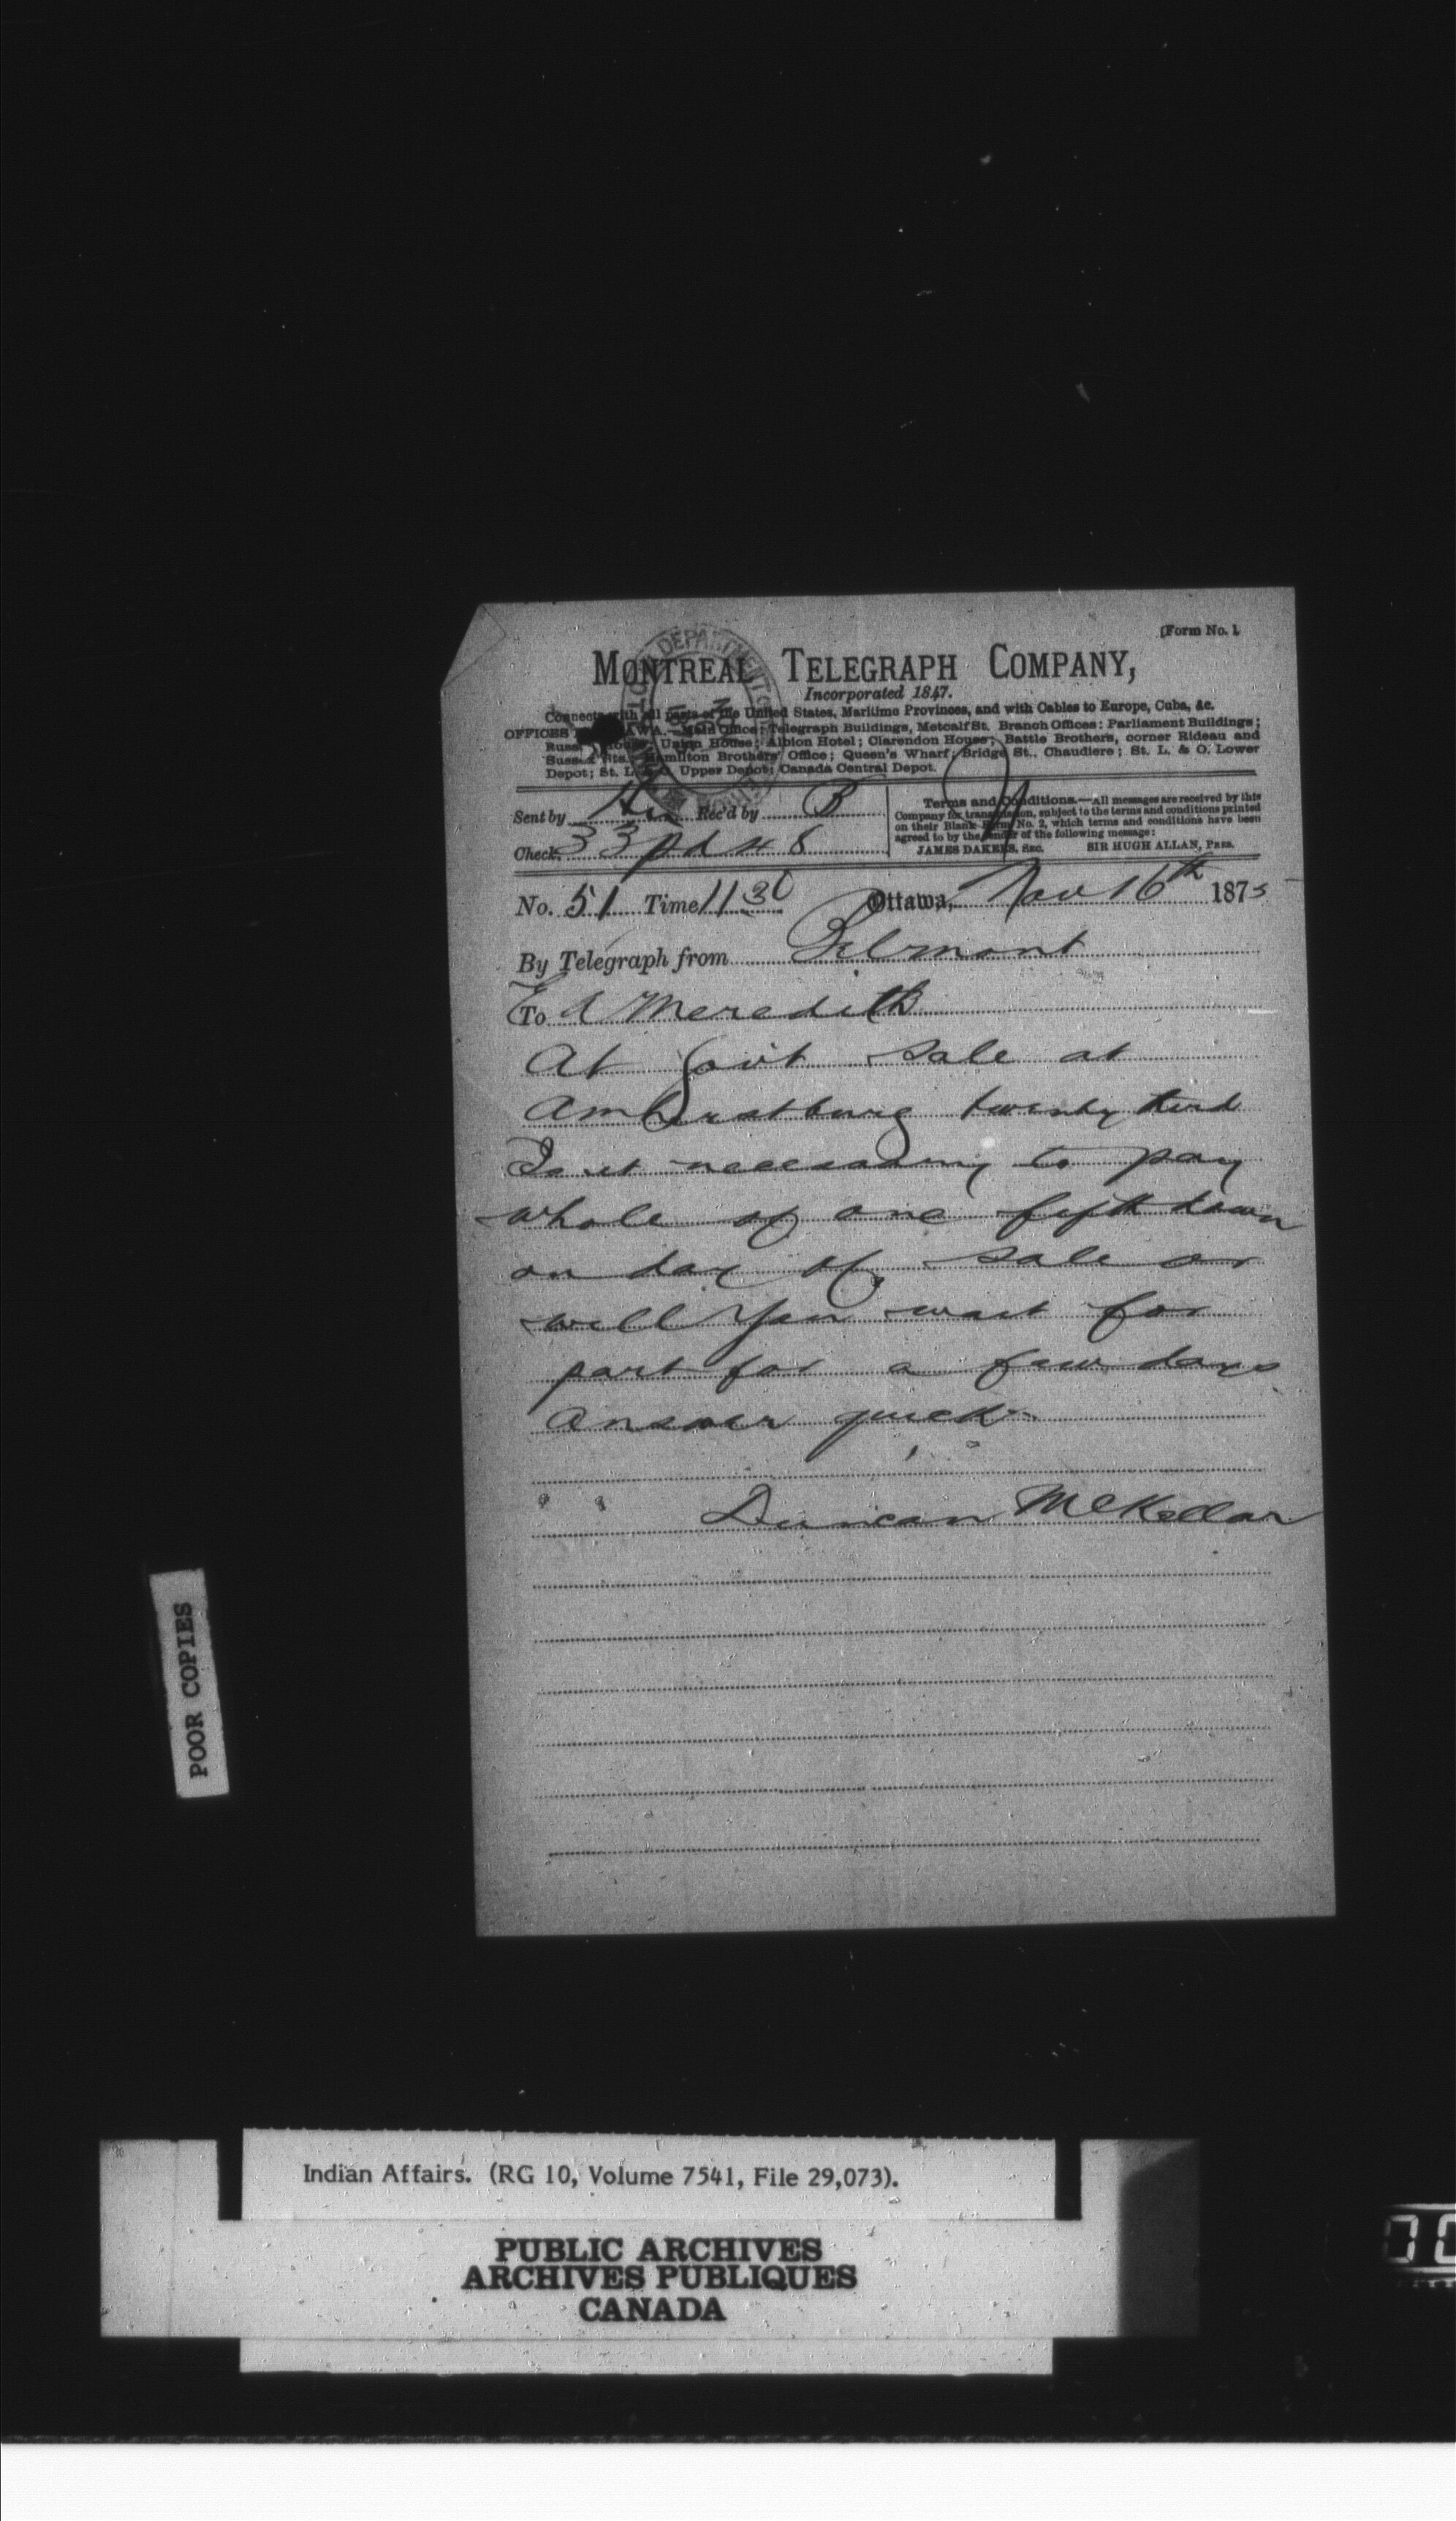 [Form No. 1.
MONTREAL TELEGRAPH COMPANY,
Incorporated 1847.
Connects with all parts of the United States, Maritime Provinces, and with Cables to Europe, Cuba, &c.
OFFICES AWA.—Main Office: Telegraph Buildings, Metcalf St. Branch Offices: Parliament Buildings;
Russ House; Union House; Albion Hotel; Clarendon House; Battle Brothers, corner Rideau and
Sussex Sts.; Hamilton Brothers' Office; Queen's Wharf; Bridge St., Chaudiere; St. L. & O. Lower
Depot; St. L. & O. Upper Depot; Canada Central Depot.
DEPARTMENT
Sent by Rec'd by B
Check 33 pd 48
Terms and Conditions.—All messages are received by this
Company for transmission, subject to the terms and conditions printed
on their Blank Form No. 2, which terms and conditions have been
agreed to by the sender of the following message:
JAMES DAKERS, Sec. SIR HUGH ALLAN, Pres.
No. 51 Time 1130 Ottawa, Nov 16th 1875
By Telegraph from Belmont
To E A Meredith
At Govt sale at
Amherstburg twenty third
Is it necessary to pay
whole of one fifth down
on day of sale or
will you wait for
part for a few days
Answer quick
Duncan McKellar
POOR COPIES
Indian Affairs. (RG 10, Volume 7541, File 29,073).
PUBLIC ARCHIVES
ARCHIVES PUBLIQUES
CANADA